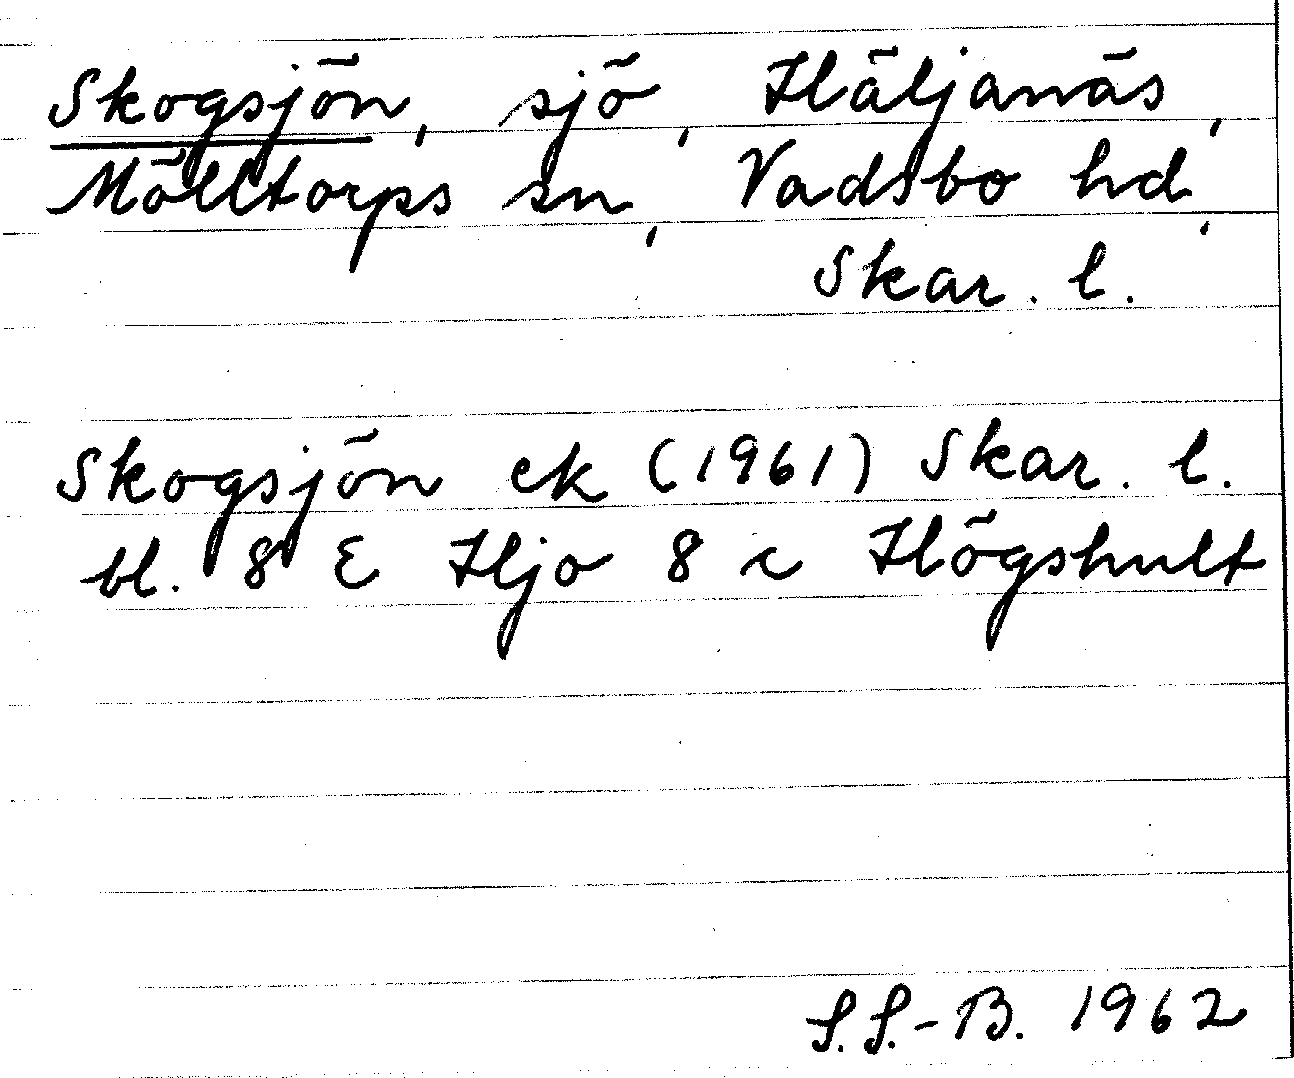 Skogsjön, sjö, Häljanäs,
Mölltorps sn, Vadsbo hd,
Skar. l.
Skogsjön ek (1961) Skar. l.
bl. 8 E Hjo 8 c Högshult
S.S-B. 1962